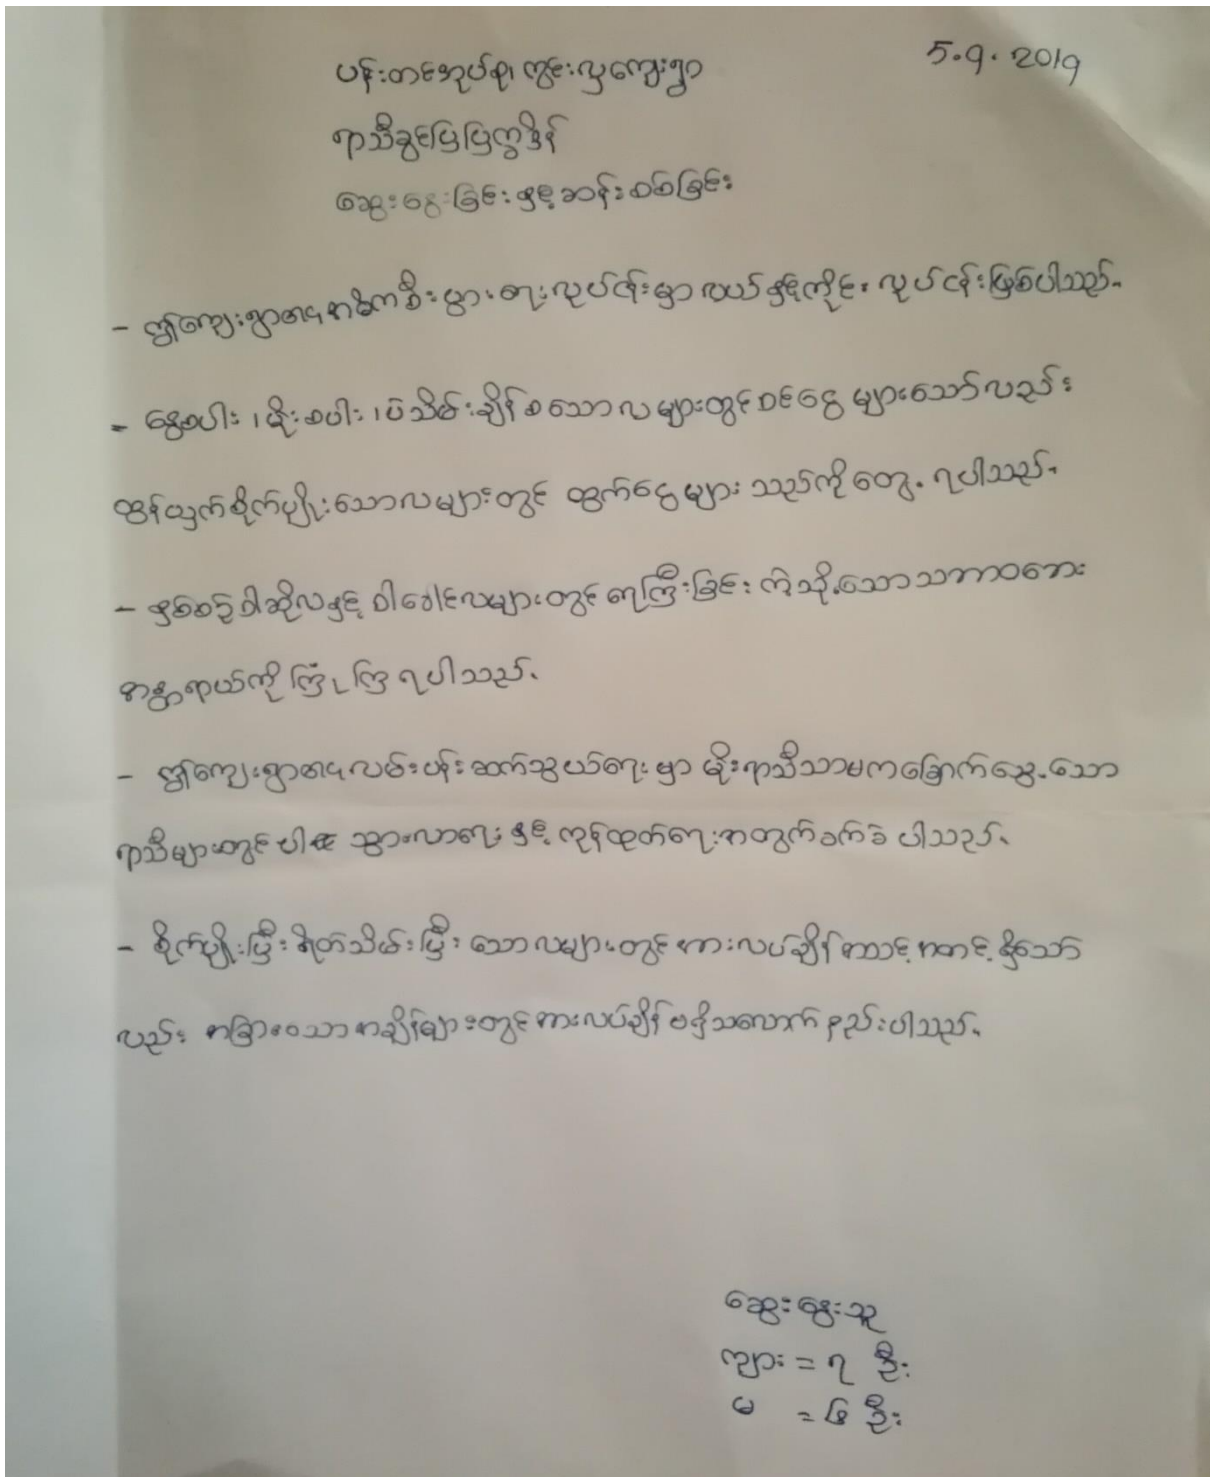 ပန်းတင်အုပ်စု၊ ကွင်းလှကျေးရွာ
5.9.2019
ရာသီခွင်ပြပြက္ခဒိန်
ဆွေးနွေးခြင်းနှင့်ဆန်းစစ်ခြင်း
- ဤကျေးရွာ၏အဓိကစီးပွားရေးလုပ်ငန်းမှာ လယ်နှင့်ကိုင်းလုပ်ငန်းဖြစ်ပါသည်။
- နွေစပါး၊ မိုးစပါး၊ ပဲသိမ်းချိန်စသောလများတွင်ဝင်ငွေများသော်လည်း
ထွန်ယှက်စိုက်ပျိုးသောလများတွင် ထွက်ငွေများသည်ကိုတွေ့ရပါသည်။
- နှစ်စဉ်ဝါဆိုလနှင့် ဝါခေါင်လများတွင်ရေကြီးခြင်းကဲ့သို့သောသဘာဝဘေး
အန္တရာယ်ကိုကြုံကြရပါသည်။
- ဤကျေးရွာ၏လမ်းပန်းဆက်သွယ်ရေးမှာ မိုးရာသီသာမကခြောက်သွေ့သော
ရာသီများတွင်ပါ သွားလာရေးနှင့်ကုန်ထုတ်ရေးအတွက်ခက်ခဲပါသည်။
- စိုက်ပျိုးပြီးရိတ်သိမ်းပြီးသောလများတွင်အားလပ်ချိန်အသင့်အတင့်ရှိသော်
လည်း အခြားသောအချိန်များတွင်အားလပ်ချိန်မရှိသလောက်နည်းပါသည်။
ဆွေးနွေးသူ
ကျား = ၇ ဦး
မ = ၆ ဦး